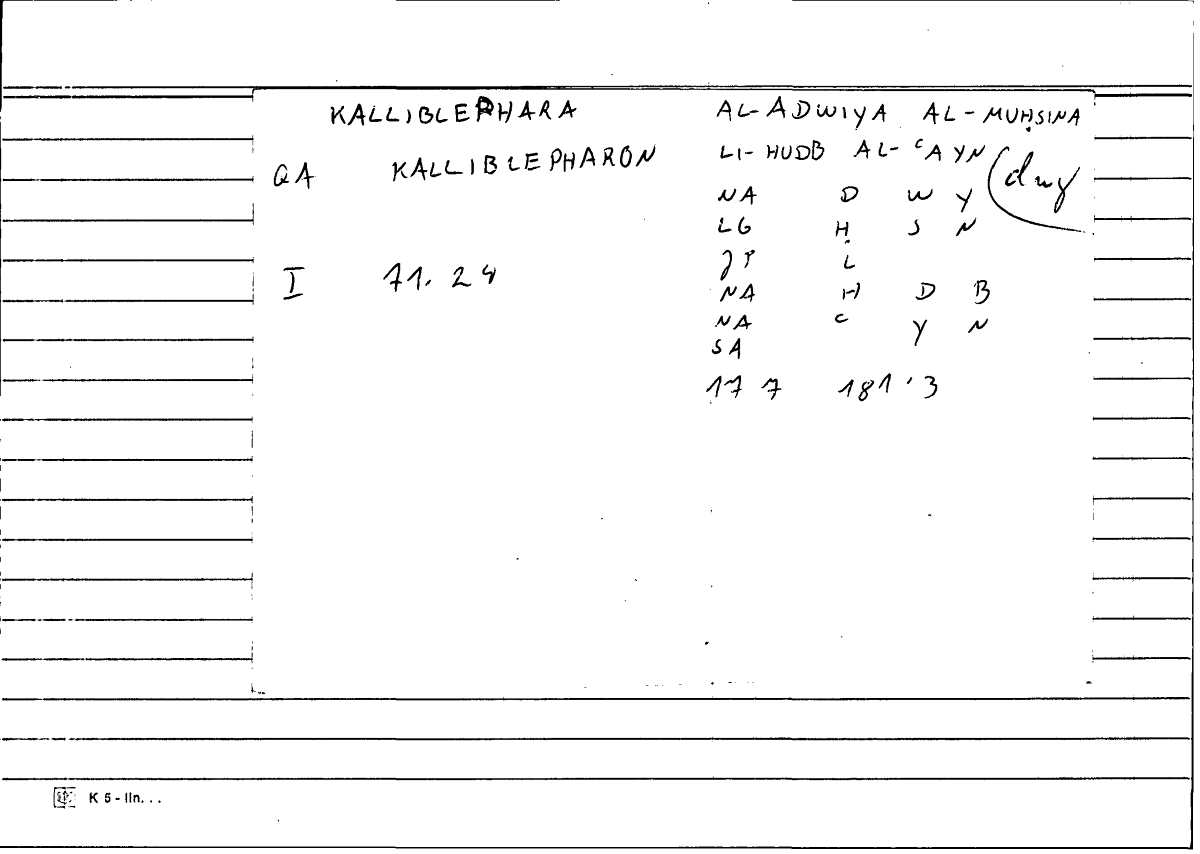 KALLIBLEPHARA AL-ADWIYA AL-MUḤSINA
QA KALLIBLEPHARON LI-HUDB AL-ᶜAYN (dwy
NA D W Y
LG Ḥ S N
JP L
I 71. 24
NA H D B
NA ᶜ Y N
SA
177 181,3
K 5 - lin. . .